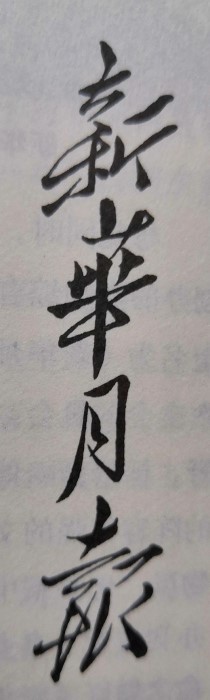 新華月報